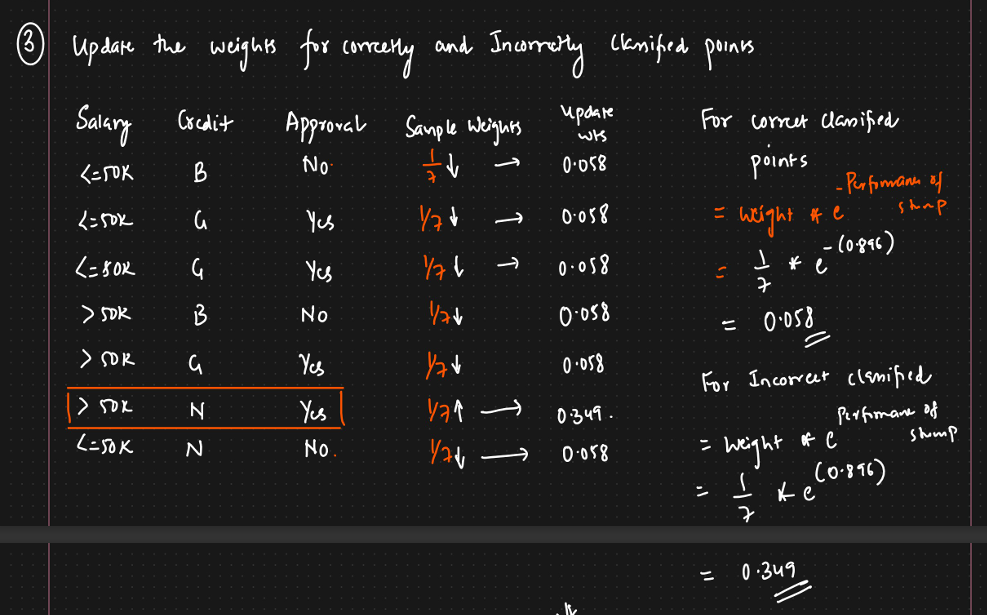 3 Update the weights for correctly and Incorrectly Classified points
Salary Credit Approval Sample Weights Update wts
<=50K B No 1/7 ↓ → 0.058
<=50K G Yes 1/7 ↓ → 0.058
<=50K G Yes 1/7 ↓ → 0.058
>50K B No 1/7 ↓ 0.058
>50K G Yes 1/7 ↓ 0.058
>50K N Yes 1/7 ↑ → 0.349.
<=50K N No. 1/7 ↓ → 0.058
For correct classified
points
= weight * e^-Performance of stump
= 1/7 * e^-(0.896)
= 0.058
For Incorrect classified
= Weight * e^Performance of stump
= 1/7 * e^(0.896)
= 0.349